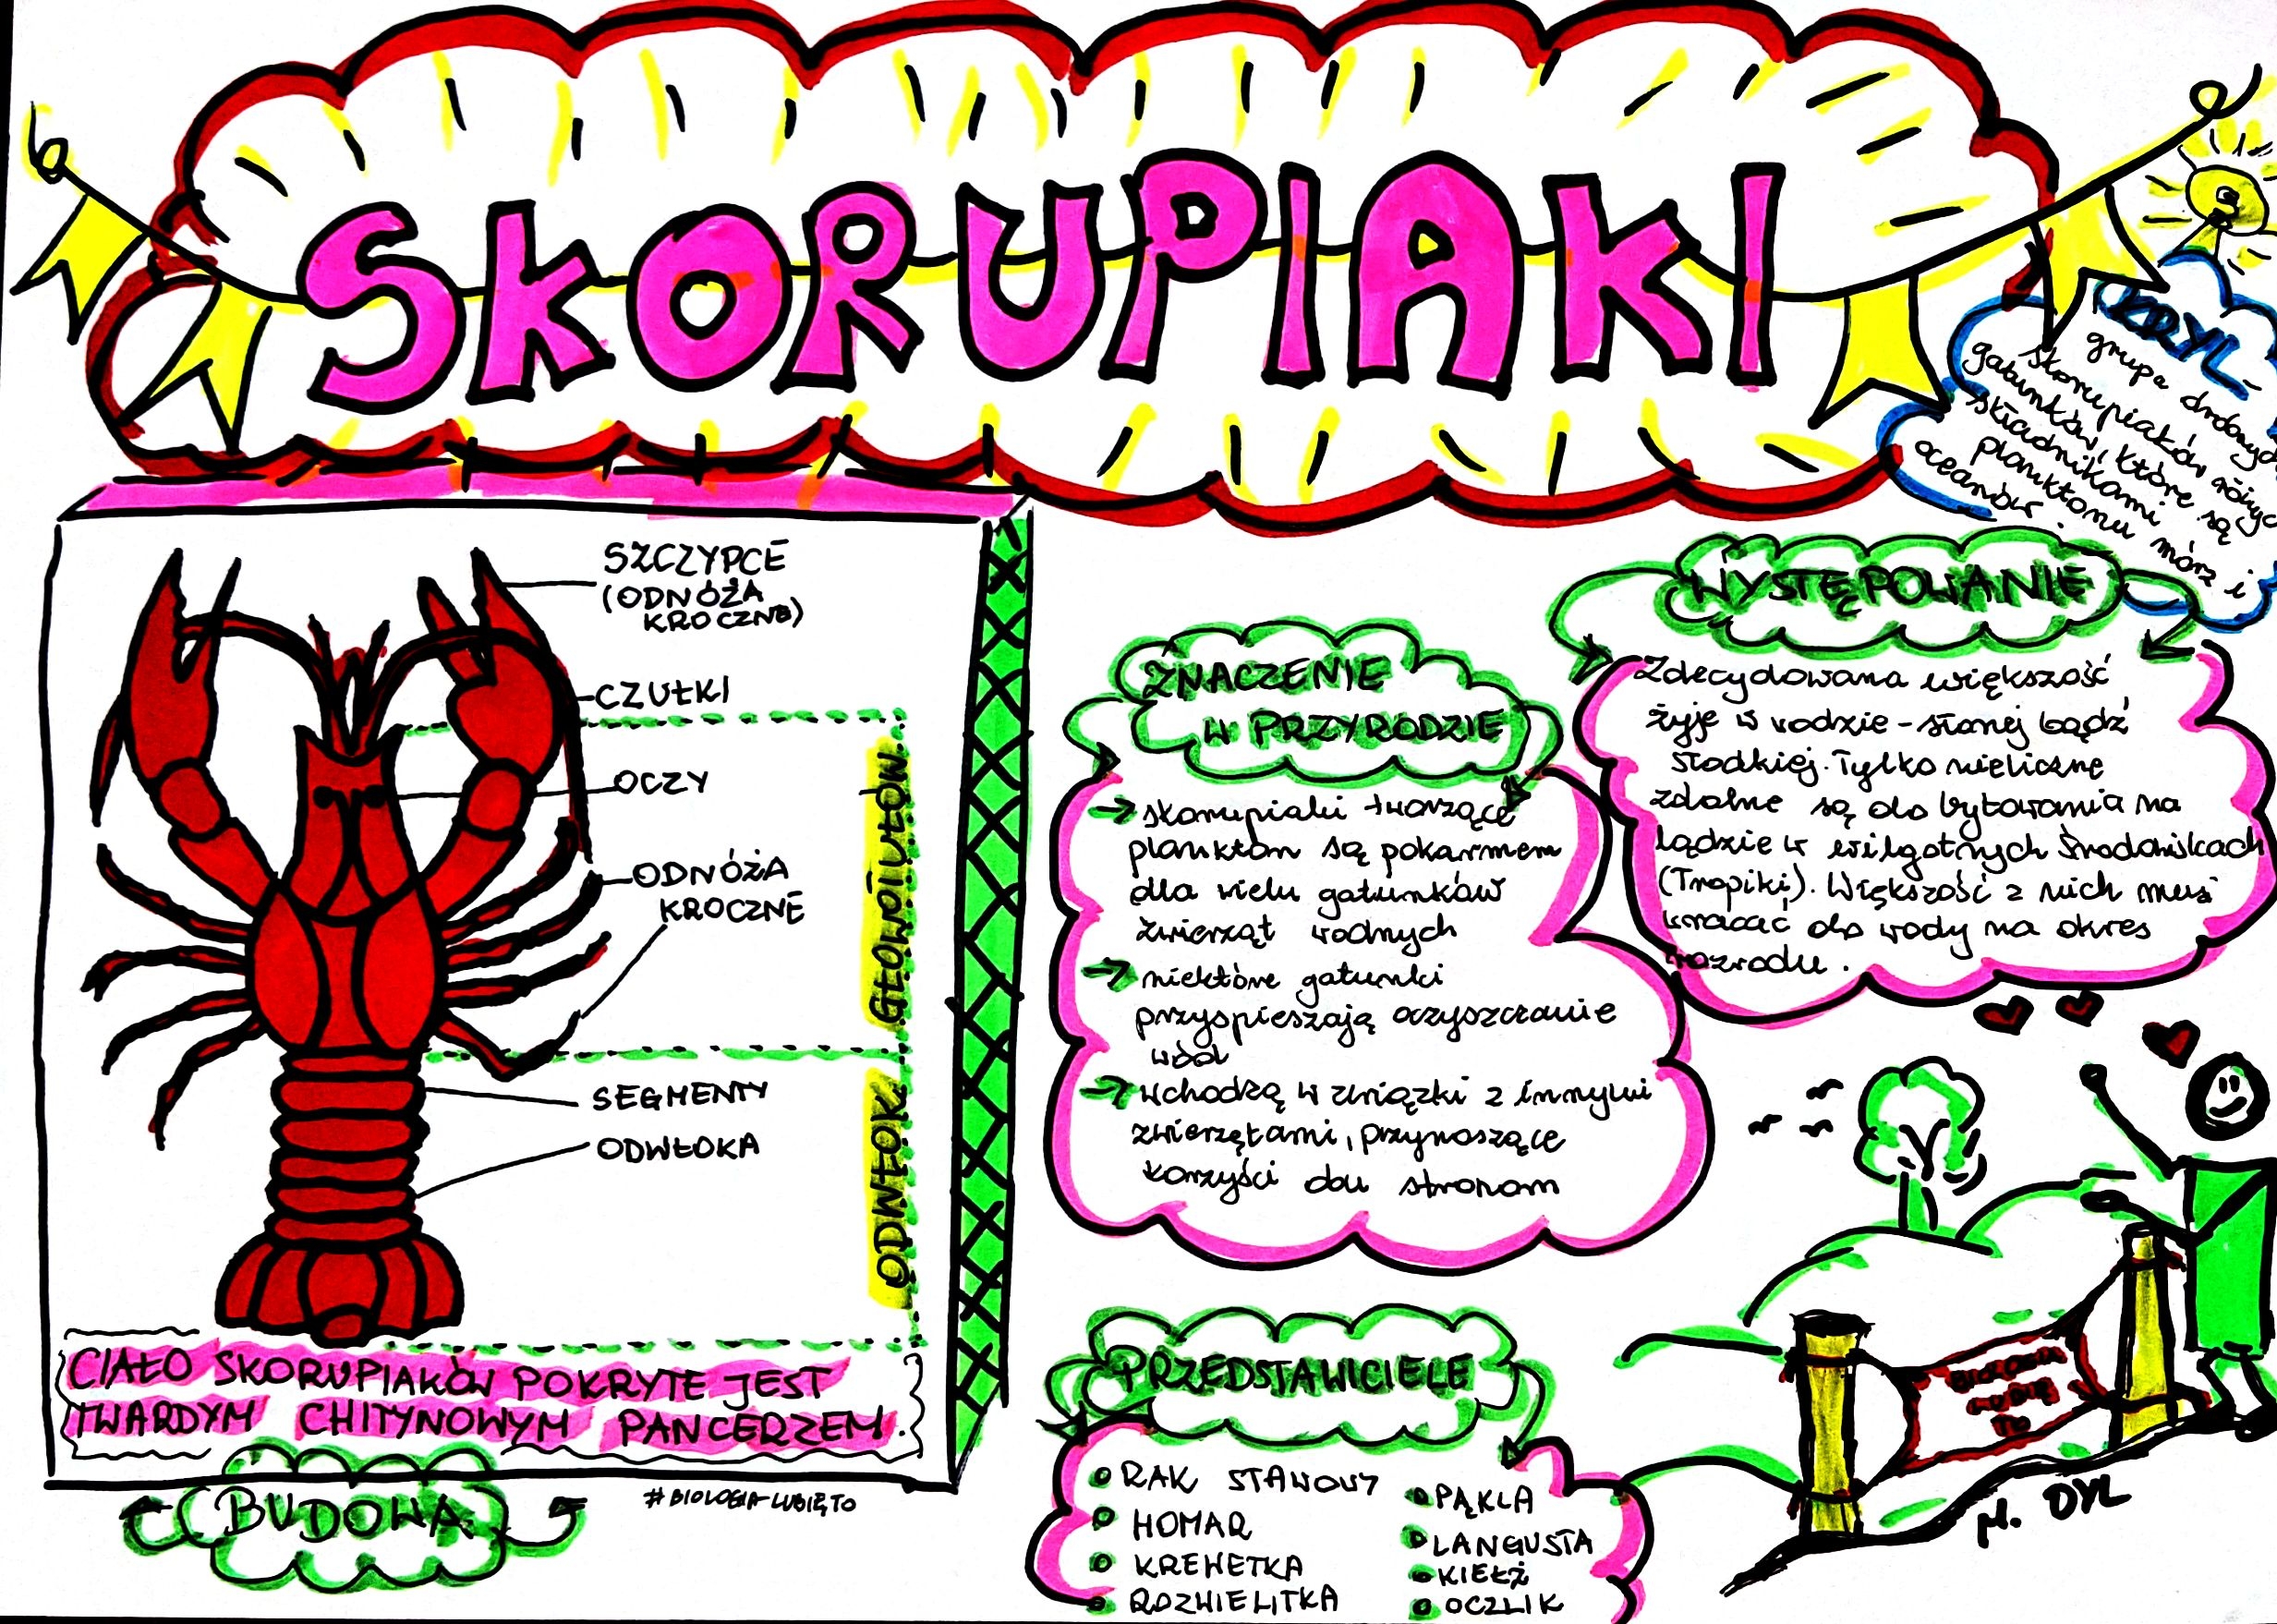 SKORUPIAKI
KRYL-
grupa drobnych
skorupiaków różnych
gatunków, które są
składnikami
planktonu mórz i
oceanów.
SZCZYPCE
(ODNÓŻA
KROCZNE)
CZUŁKI
OCZY
ODNÓŻA
KROCZNE
SEGMENTY
ODWŁOKA
GŁOWOTUŁÓW
ODWŁOK
CIAŁO SKORUPIAKÓW POKRYTE JEST
TWARDYM CHITYNOWYM PANCERZEM.
BUDOWA
#BIOLOGIA-LUBIĘTO
ZNACZENIE
W PRZYRODZIE
→ skorupiaki tworzące
plankton są pokarmem
dla wielu gatunków
zwierząt wodnych
→ niektóre gatunki
przyspieszają oczyszczanie
wód
→ wchodzą w związki z innymi
zwierzętami, przynoszące
korzyści obu stronom
WYSTĘPOWANIE
Zdecydowana większość
żyje w wodzie - słonej bądź
słodkiej. Tylko nieliczne
zdolne są do bytowania na
lądzie w wilgotnych środowiskach
(Tropiki). Większość z nich musi
wracać do wody na okres
rozrodu.
PRZEDSTAWICIELE
RAK STAWOWY
HOMAR
KREWETKA
ROZWIELITKA
PĄKLA
LANGUSTA
KIEŁŻ
OCZLIK
BIOLOGIA
LUBIĘ
TO
DYL